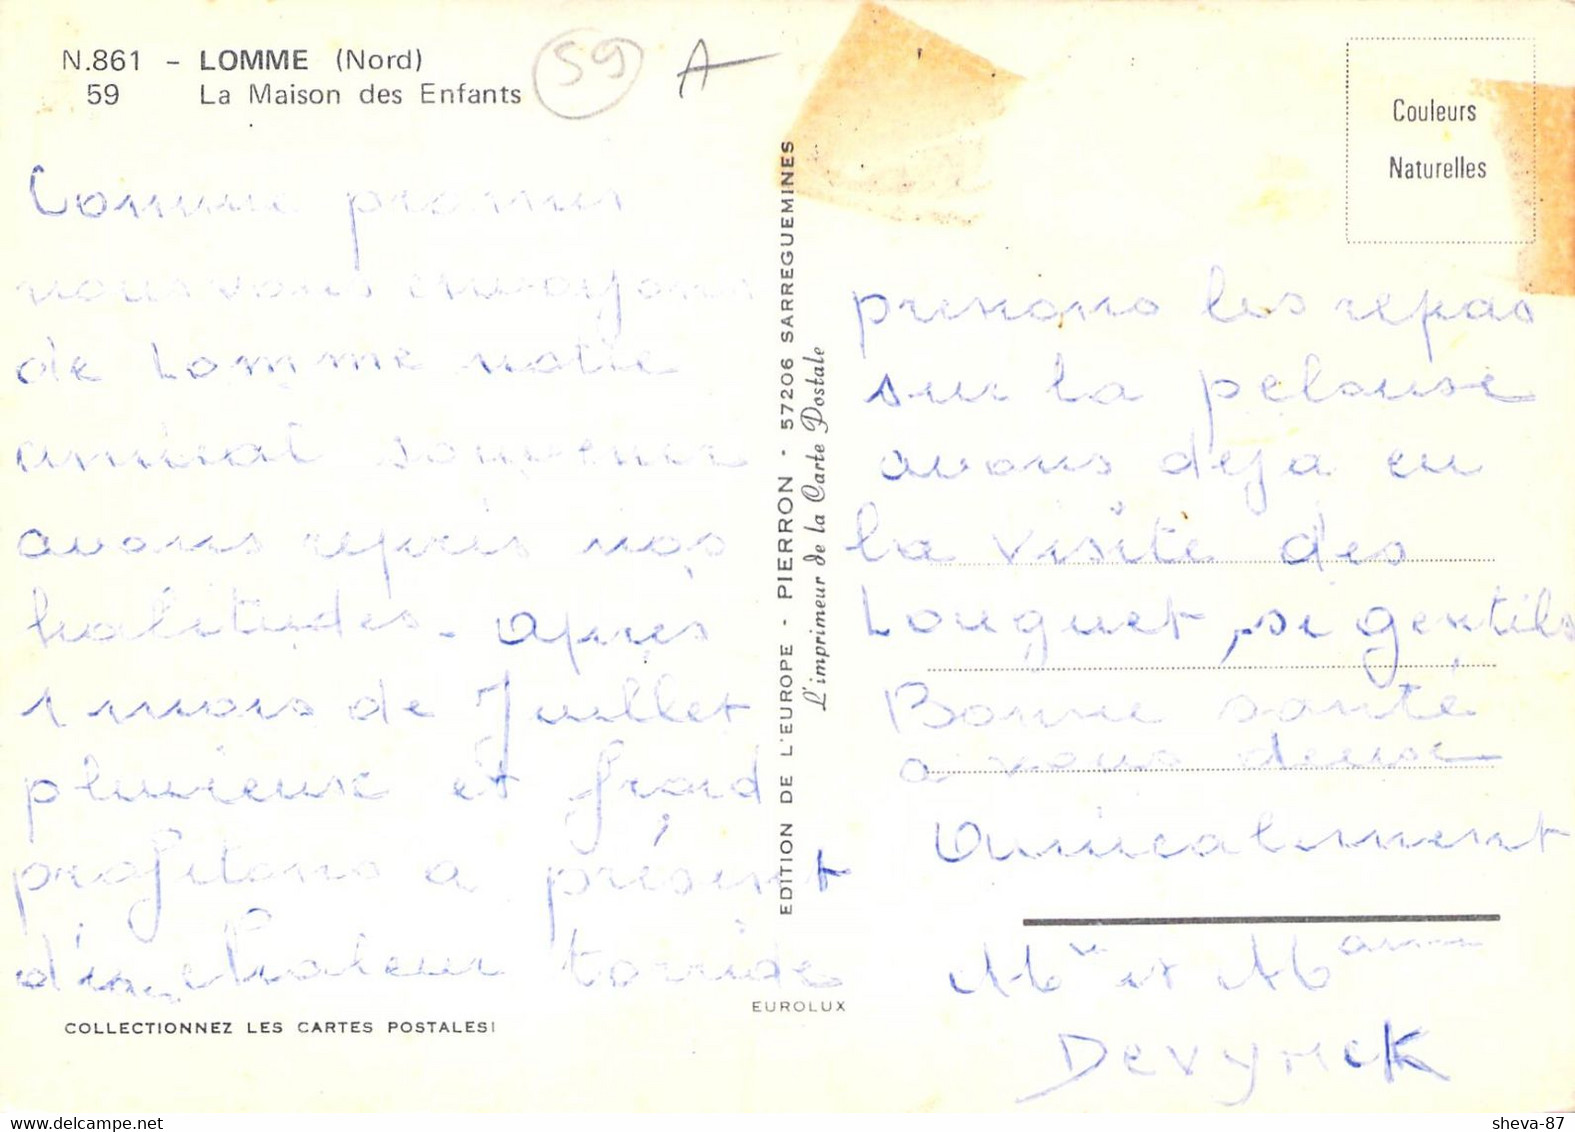 N.861 - LOMME (Nord)
59 La Maison des Enfants
59 A
Comme promis
nous vous envoyons
de Lomme notre
amical souvenir
avons repris nos
habitudes. après
1 mois de Juillet
plurieux et froid
profitons a présent
d'une chaleur torride
COLLECTIONNEZ LES CARTES POSTALES!
EDITION DE L'EUROPE - PIERRON - 57206 SARREGUEMINES
L'imprimeur de la Carte Postale
EUROLUX
Couleurs
Naturelles
prenons les repas
sur la pelouse
avons deja eu
la visite des
Louguet, si gentils
Bonne santé
a vous deux
Amicalement
Mr et Madame
Devynck
sheva-87